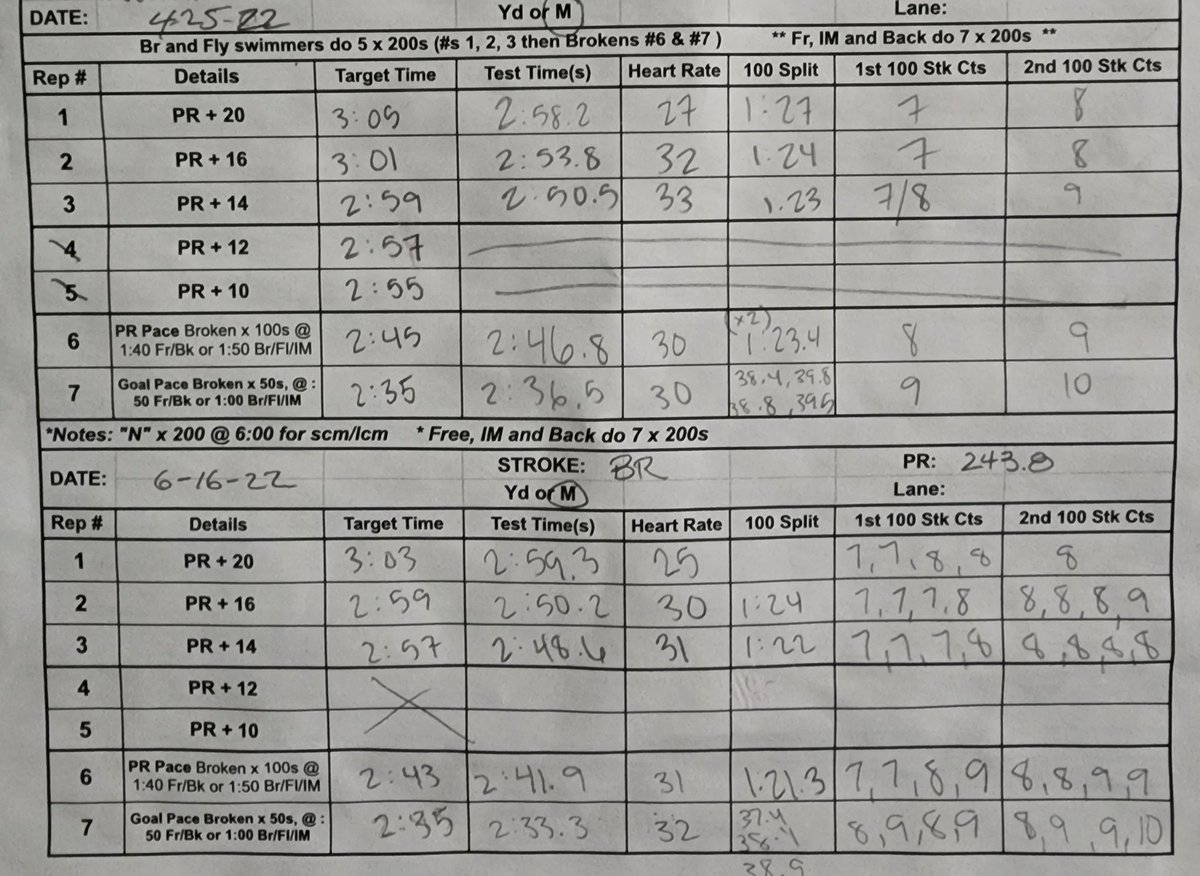 DATE: 4-25-22 Yd or M Lane:
Br and Fly swimmers do 5 x 200s (#s 1, 2, 3 then Brokens #6 & #7 ) ** Fr, IM and Back do 7 x 200s **
Rep # Details Target Time Test Time(s) Heart Rate 100 Split 1st 100 Stk Cts 2nd 100 Stk Cts
1 PR + 20 3:05 2:58.2 27 1:27 7 8
2 PR + 16 3:01 2:53.8 32 1:24 7 8
3 PR + 14 2:59 2:50.5 33 1.23 7/8 9
4 PR + 12 2:57
5 PR + 10 2:55
6 PR Pace Broken x 100s @ 2:45 2:46.8 30 (x2) 8 9
1:40 Fr/Bk or 1:50 Br/Fl/IM 1:23.4
7 Goal Pace Broken x 50s, @ : 2:35 2:36.5 30 38.4, 39.8 9 10
50 Fr/Bk or 1:00 Br/Fl/IM 38.8, 39.5
*Notes: "N" x 200 @ 6:00 for scm/lcm * Free, IM and Back do 7 x 200s
STROKE: BR PR: 243.8
DATE: 6-16-22 Yd or M Lane:
Rep # Details Target Time Test Time(s) Heart Rate 100 Split 1st 100 Stk Cts 2nd 100 Stk Cts
1 PR + 20 3:03 2:59.3 25 7,7,8,8 8
2 PR + 16 2:59 2:50.2 30 1:24 7,7,7,8 8,8,8,9
3 PR + 14 2:57 2:48.6 31 1:22 7,7,7,8 8,8,8,8
4 PR + 12
5 PR + 10
6 PR Pace Broken x 100s @ 2:43 2:41.9 31 1:21.3 7,7,8,9 8,8,9,9
1:40 Fr/Bk or 1:50 Br/Fl/IM
7 Goal Pace Broken x 50s, @ : 2:35 2:33.3 32 37.4 8,9,8,9 8,9 9,10
50 Fr/Bk or 1:00 Br/Fl/IM
38.9